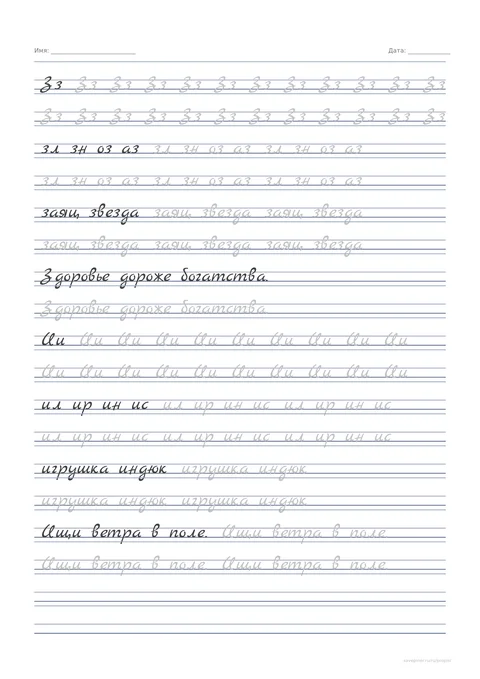 Имя: Дата:
Зз Зз Зз Зз Зз Зз Зз Зз Зз Зз Зз Зз
Зз Зз Зз Зз Зз Зз Зз Зз Зз Зз Зз Зз
зл зн оз аз зл зн оз аз зл зн оз аз
зл зн оз аз зл зн оз аз зл зн оз аз
заяц звезда заяц звезда заяц звезда
заяц звезда заяц звезда заяц звезда
Здоровье дороже богатства.
Здоровье дороже богатства
Ии Ии Ии Ии Ии Ии Ии Ии Ии Ии
Ии Ии Ии Ии Ии Ии Ии Ии Ии Ии
ил ир ин ис ил ир ин ис ил ир ин ис
ил ир ин ис ил ир ин ис ил ир ин ис
игрушка индюк игрушка индюк
игрушка индюк игрушка индюк
Ищи ветра в поле. Ищи ветра в поле
Ищи ветра в поле Ищи ветра в поле